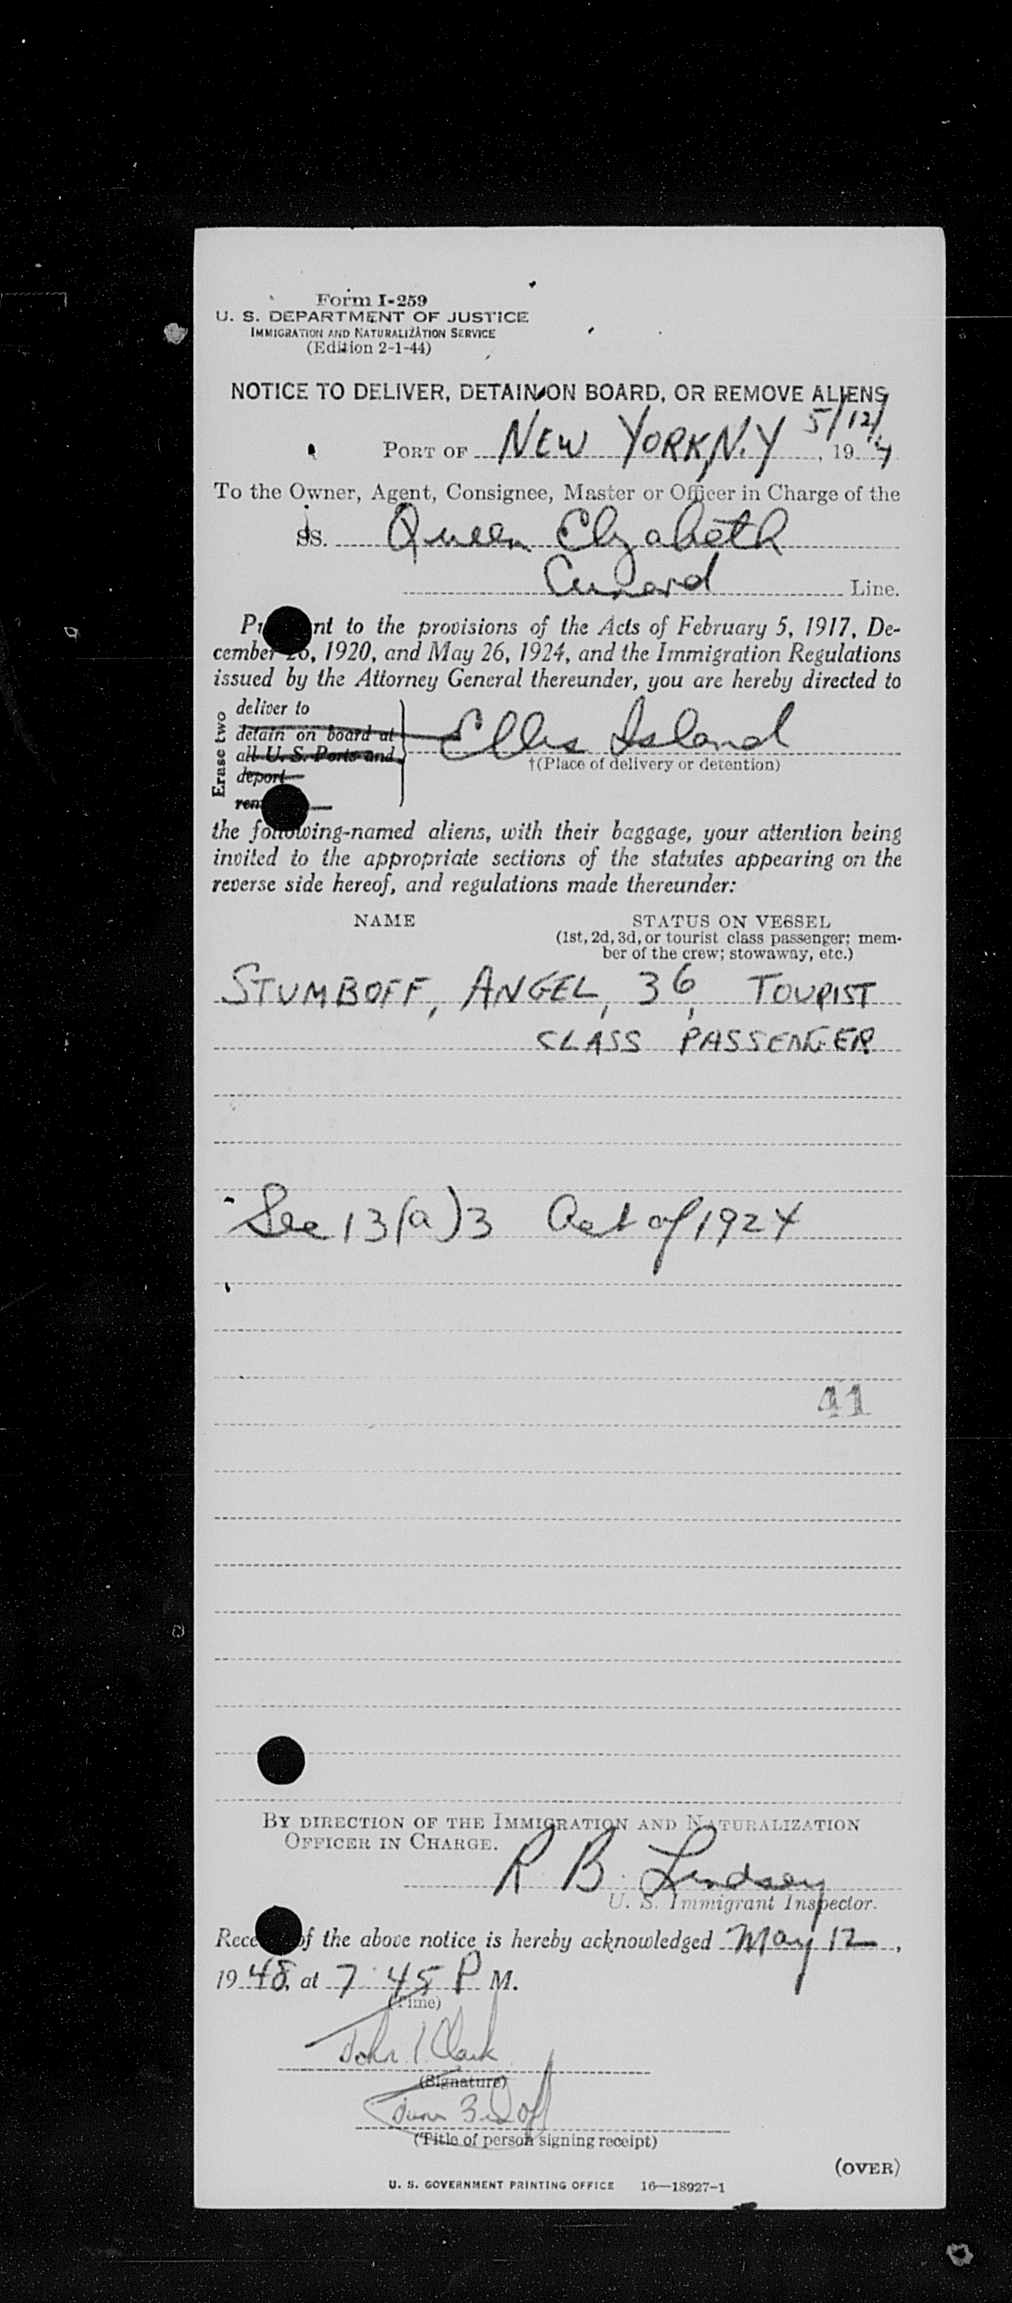 Form I-259
U. S. DEPARTMENT OF JUSTICE
IMMIGRATION AND NATURALIZATION SERVICE
(Edition 2-1-44)
NOTICE TO DELIVER, DETAIN ON BOARD, OR REMOVE ALIENS
5/12/
PORT OF NEW YORK, N.Y , 19
To the Owner, Agent, Consignee, Master or Officer in Charge of the
SS. Queen Elizabeth
Cunard Line.
nt to the provisions of the Acts of February 5, 1917, De-
cember 26, 1920, and May 26, 1924, and the Immigration Regulations
issued by the Attorney General thereunder, you are hereby directed to
Erase two
deliver to
detain on board at
all U. S. Ports and
deport
Ellis Island
†(Place of delivery or detention)
the following-named aliens, with their baggage, your attention being
invited to the appropriate sections of the statutes appearing on the
reverse side hereof, and regulations made thereunder:
NAME STATUS ON VESSEL
(1st, 2d, 3d, or tourist class passenger; mem-
ber of the crew; stowaway, etc.)
STUMBOFF, ANGEL, 36, TOURIST
CLASS PASSENGER
Sec 13(a)3 Act of 1924
41
BY DIRECTION OF THE IMMIGRATION AND NATURALIZATION
OFFICER IN CHARGE.
R B. Lindsey
U. S. Immigrant Inspector.
of the above notice is hereby acknowledged May 12,
1948, at 7:45 P M.
(Time)
John I Clark
(Signature)
(Title of person signing receipt)
(OVER)
U. S. GOVERNMENT PRINTING OFFICE 16—18927-1